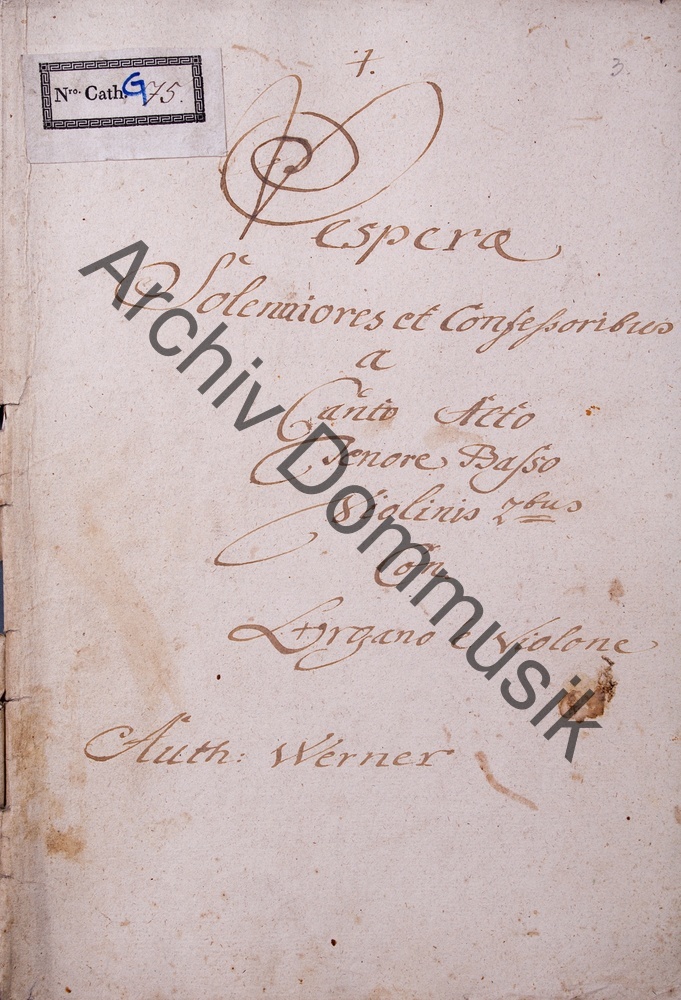 7.
3.
Nro. Cath. G 75.
Vesperæ
Solenniores et Confessoribus
a
Canto Alto
Tenore Basso
Violinis 2bus
Con
Organo e Violone
Auth: Werner
Archiv Dommusik